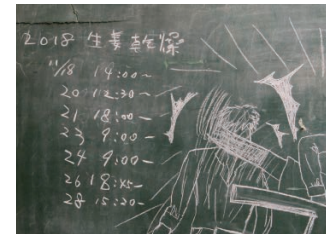 2018 生姜乾燥
11/18 14:00~
20 12:30~
21 18:00~
23 9:00~
24 9:00~
26 18:45~
28 15:20~